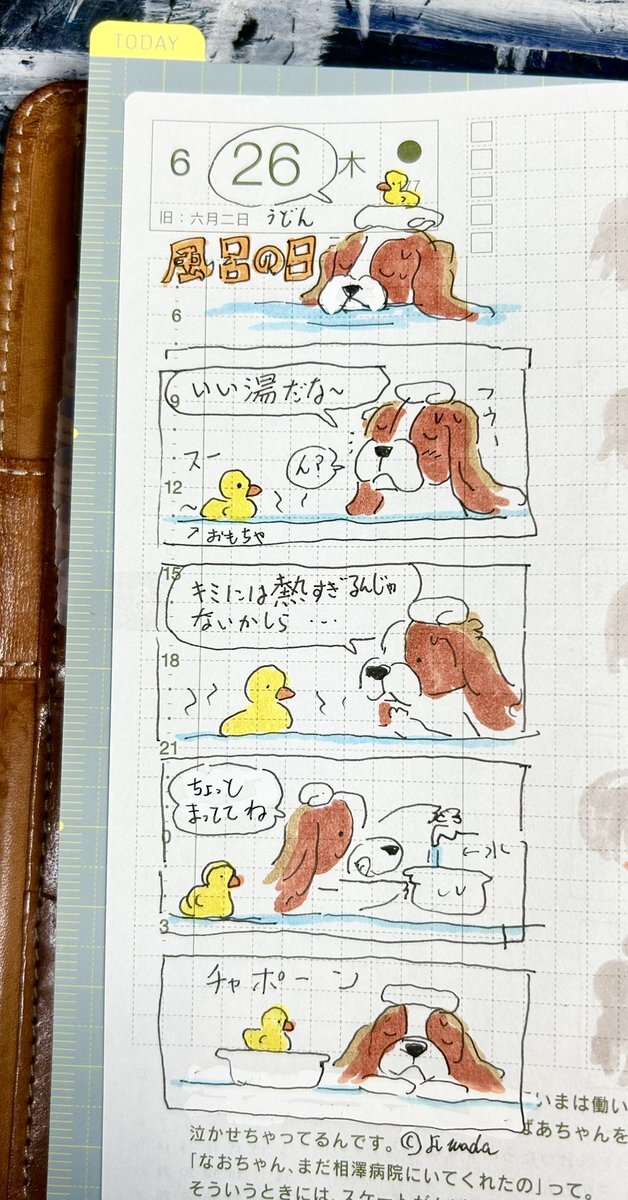 TODAY
6 26 木
旧：六月二日 うどん
風呂の日
6
いい湯だな〜
9
フゥー
スー
ん？
12
おもちゃ
15
キミには熱すぎるんじゃ
ないかしら…
18
21
ちょっと
まっててね
0
←水
3
チャポーン
いまは働い
ばあちゃんを
泣かせちゃってるんです。
「なおちゃん、まだ相澤病院にいてくれたの」って。
そういうときには、スケートが